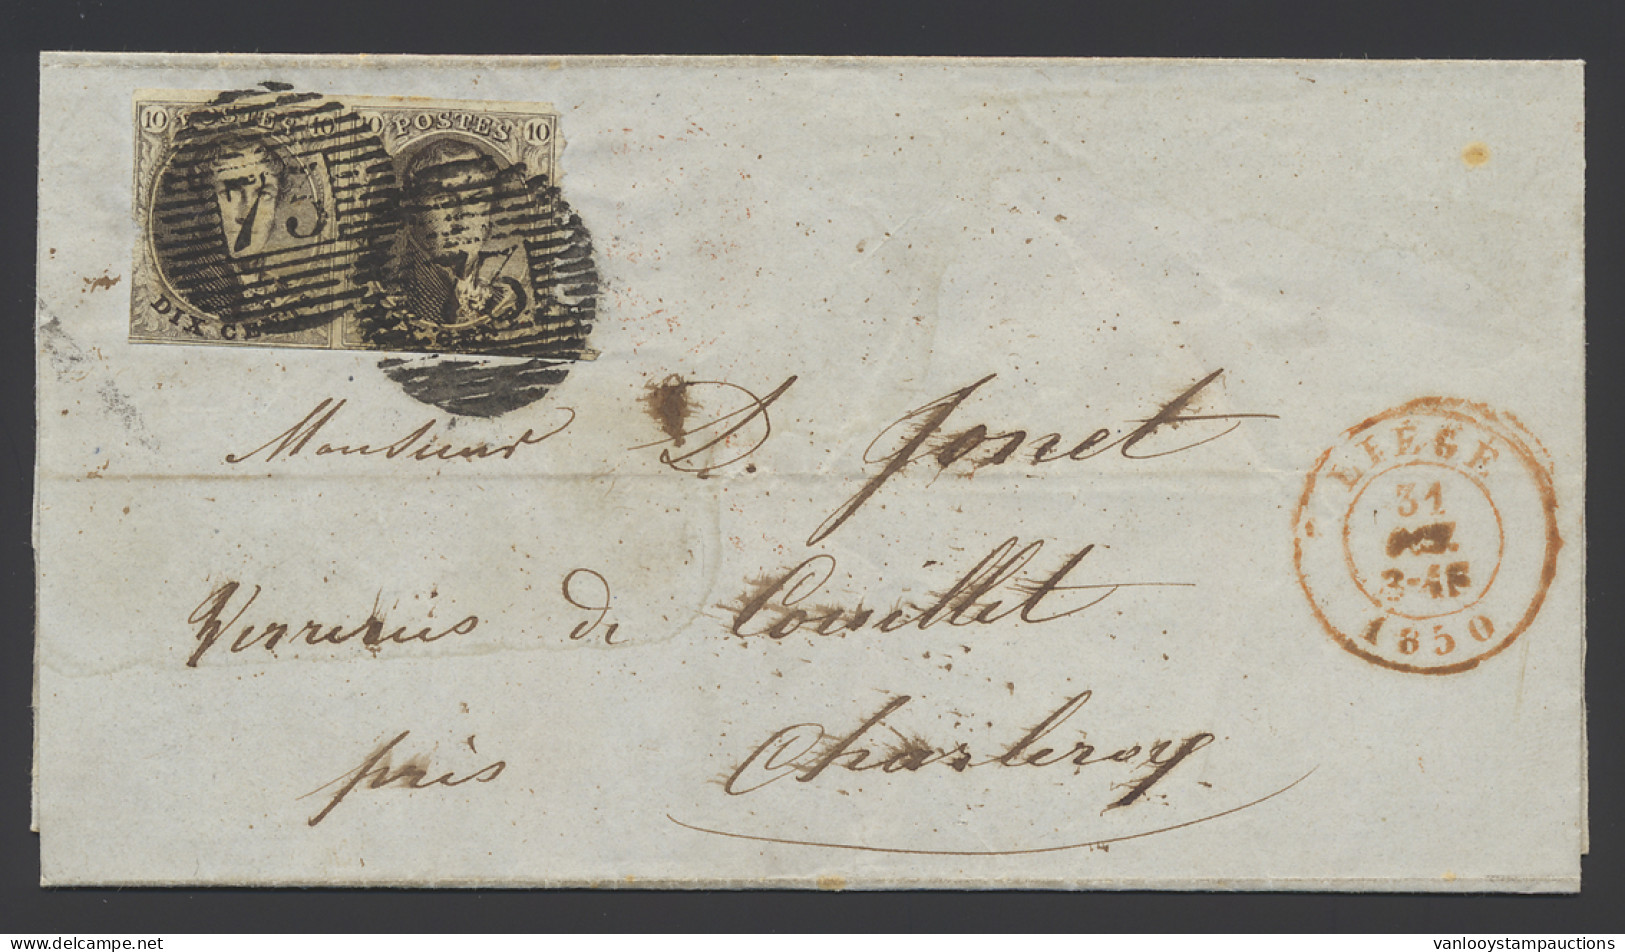 10 POSTES 10
10 POSTES 10
73
73
DIX CENT.
Monsieur D. Jonet
Verreries de Couillet
près Charleroy
LIÉGE
31
3-4S
1850
delcampe.net
vanlooystampauctions